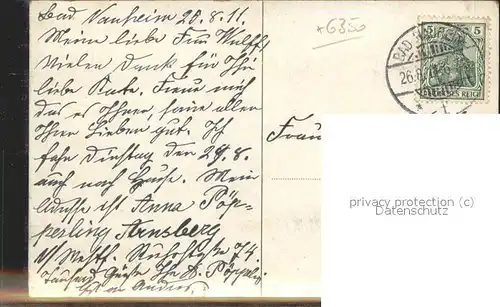 Bad Nauheim 20.8.11.
Meine liebe Frau Wulff!
Vielen Dank für Ihre
liebe Karte. Freue mich
das es Ihnen, sowie allen
Ihren Lieben gut. Ich
fahre Dienstag den 29.8.
auch nach Hause. Mein
Adresse ist Anna Pöp-
perling Arnsberg
i/Westf. Ruhrstraße 74.
Tausend Grüße Ihre A. Pöpperling
*6350
Frau
BAD
26.8.
5
DEUTSCHES REICH
privacy protection (c)
Datenschutz